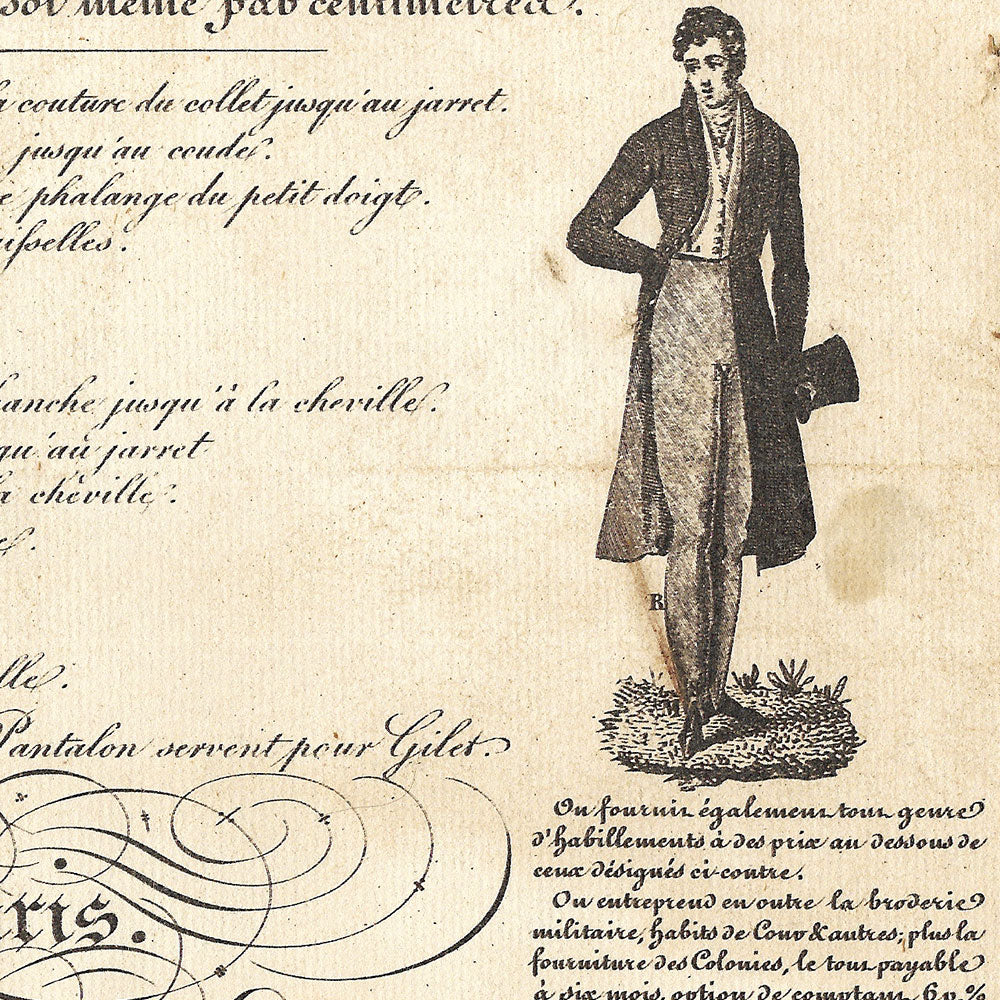 soi même par centimètres.
la couture du collet jusqu'au jarret.
jusqu'au coude.
phalange du petit doigt.
aisselles.
hanche jusqu'à la cheville.
qu'au jarret
la cheville.
lle.
Pantalon servent pour Gilet.
ris.
L
Y
R
On fournit également tout genre
d'habillements à des prix au dessous de
ceux désignés ci contre.
On entreprend en outre la broderie
militaire, habits de Cour & autres; plus la
fourniture des Colonies, le tout payable
à six mois, option de comptant, 6 p. %